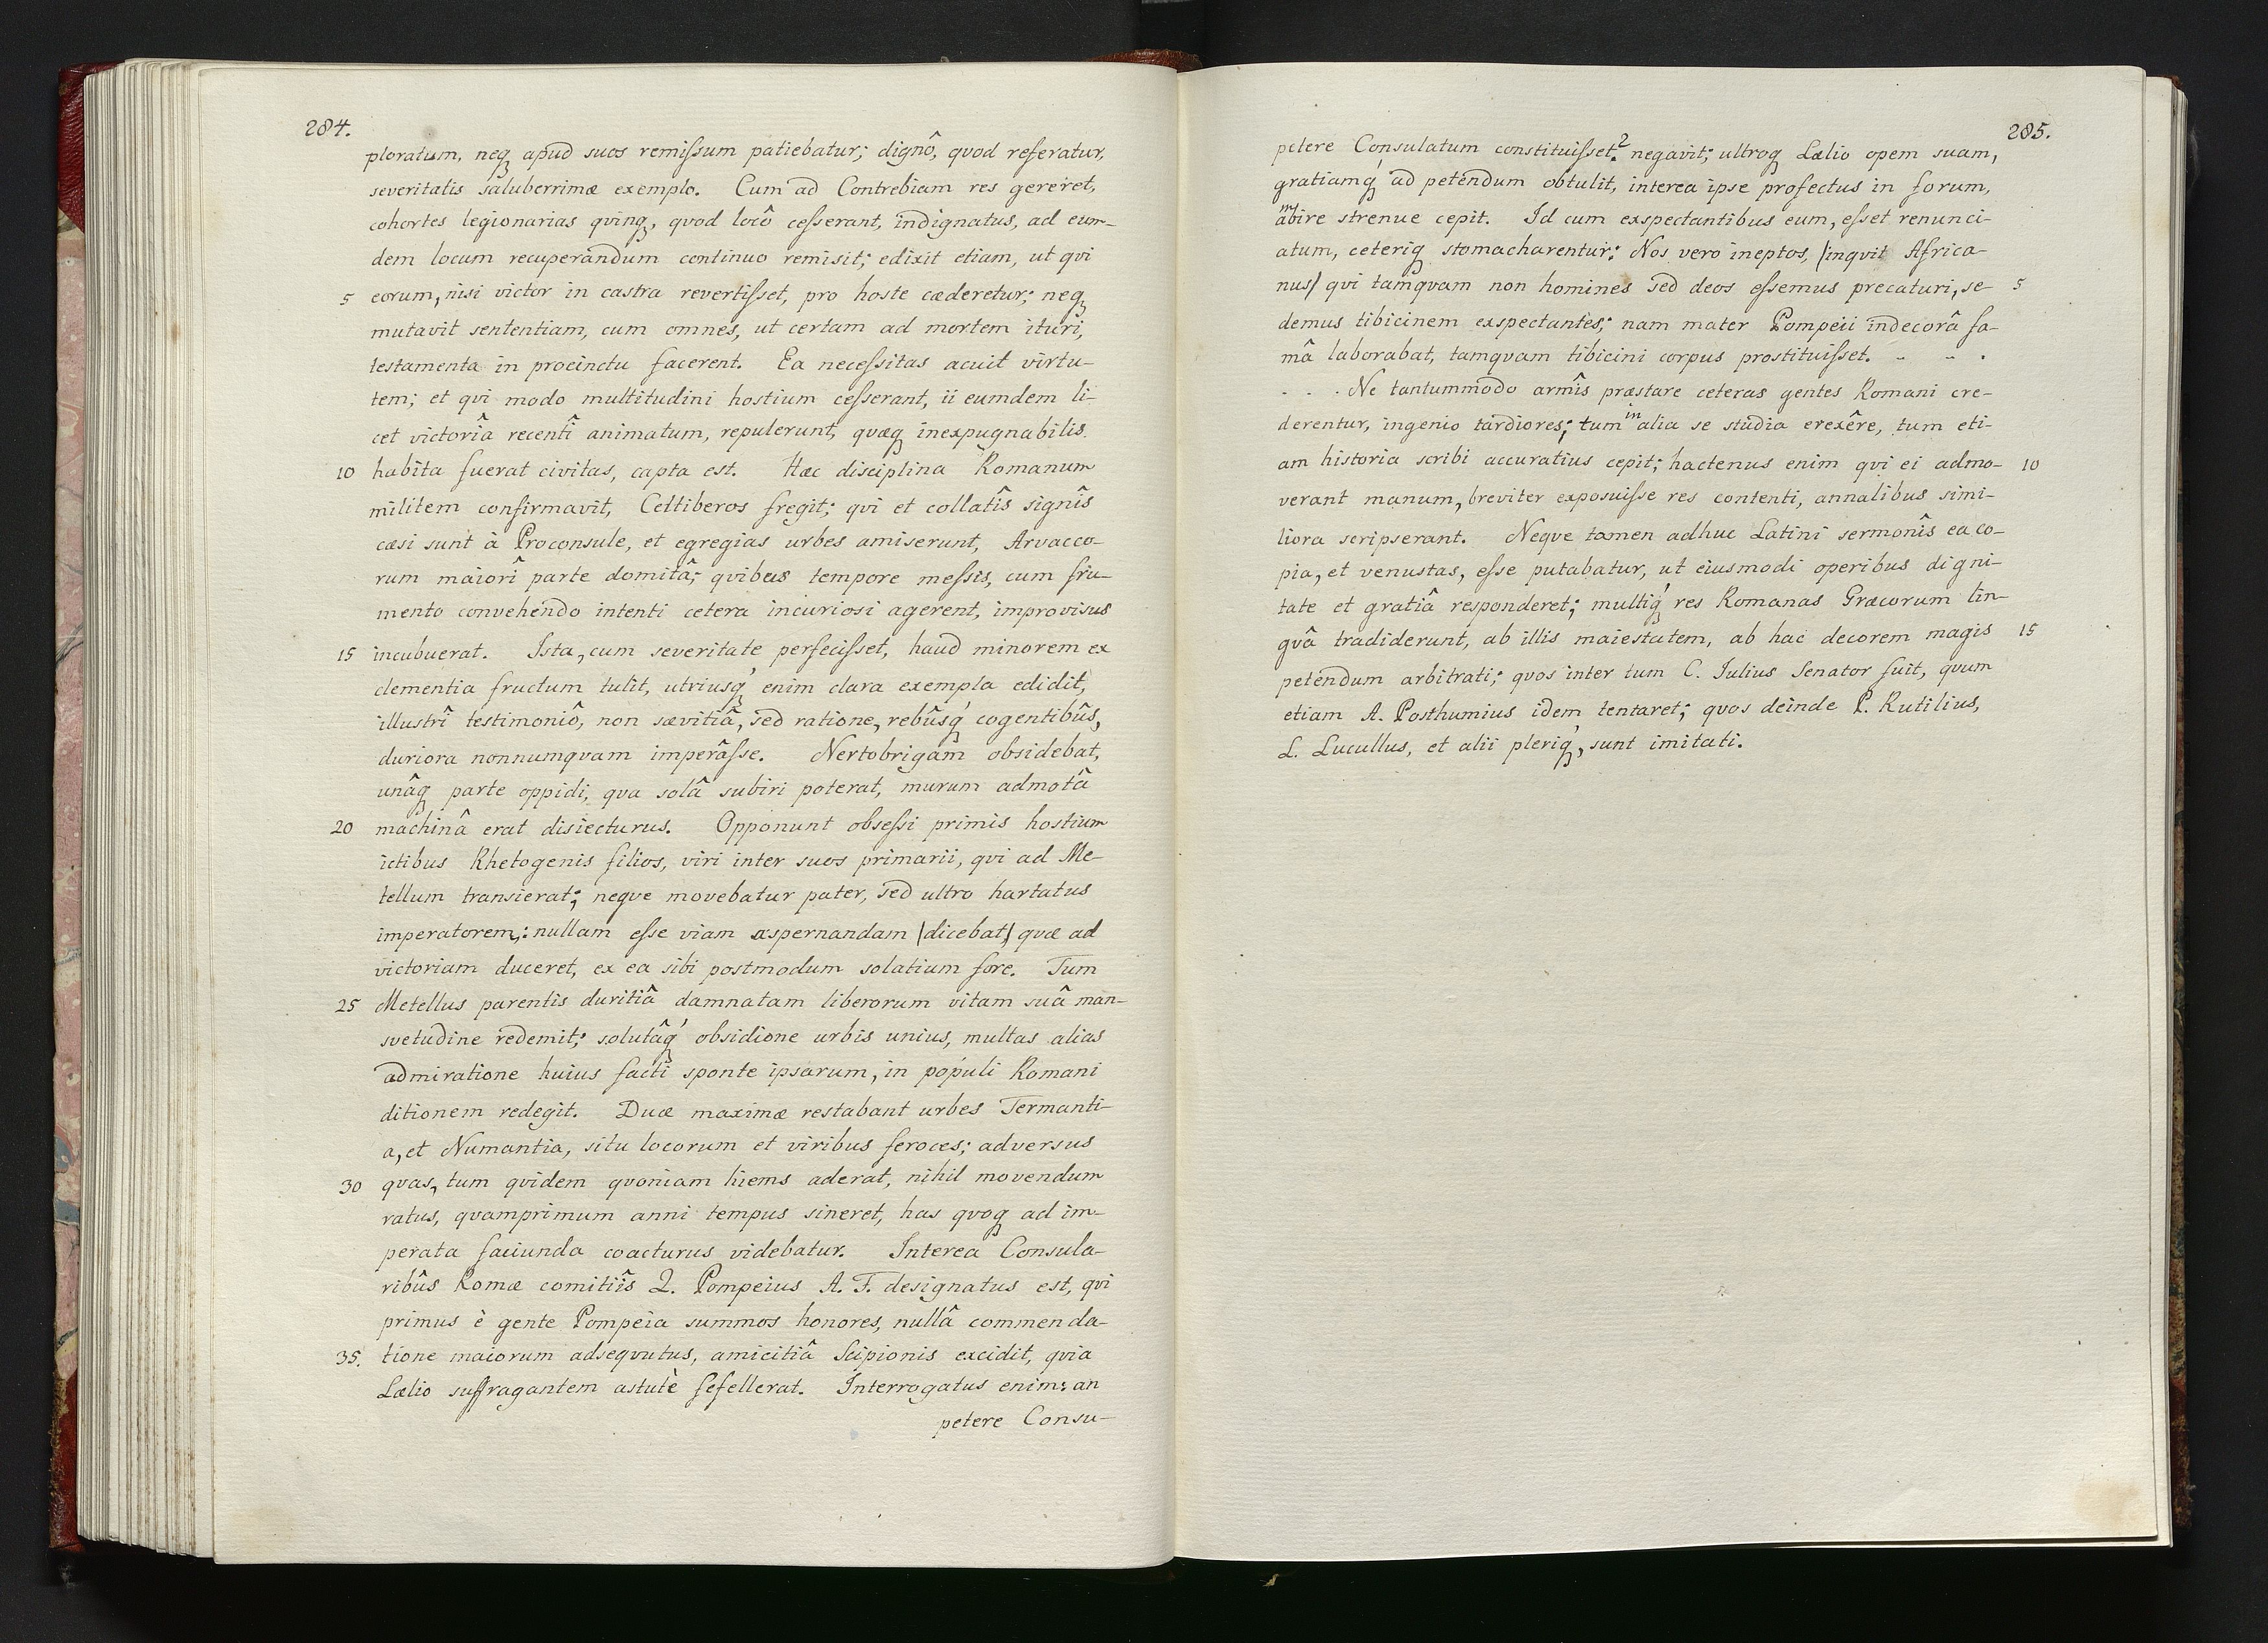 284.
ploratum, neq apud suos remiſsum patiebatur; dignô, quod referatur,
severitatis saluberrimæ exemplo. Cum ad Contrebiam res gereret,
cohortes legionarias qvinq, quod locô ceſserant, indignatus, ad eum-
dem locum recuperandum continuo remisit; edixit etiam, ut qvi
5 eorum, nisi victor in castra revertiſset, pro hoste cæderetur; neq
mutavit sententiam, cum omnes, ut certam ad mortem ituri,
testamenta in procinctu facerent. Ea neceſsitas acuit virtu-
tem; et qvi modo multitudini hostium ceſserant, ii eumdem li-
cet victoriâ recentî animatum, repulerunt, qvæq inexpugnabilis
10 habita fuerat civitas, capta est. Hæc disciplina Romanum
militem confirmavit, Celtiberos fregit; qvi et collatîs signîs
cæsi sunt à Proconsule, et egregias urbes amiserunt, Arvacco-
rum maiorî parte domitâ; qvibus tempore meſsis, cum fru-
mento convehendo intenti cetera incuriosi agerent, improvisus
15 incubuerat. Ista, cum severitate perfeciſset, haud minorem ex
clementia fructum tulit, utriusq́ enim clara exempla edidit,
illustrî testimoniô, non sævitiâ, sed ratione, rebûsq́ cogentibûs,
duriora nonnumqvam imperâſse. Nertobrigam obsidebat,
unâq parte oppidi, qva solâ subiri poterat, murum admotâ
20 machinâ erat disiecturus. Opponunt obseſsi primis hostium
ictibus Rhetogenis filios, viri inter suos primarii, qvi ad Me-
tellum transierat; neqve movebatur pater, sed ultro hartatus
imperatorem,: nullam eſse viam aspernandam /dicebat,/ qvæ ad
victoriam duceret, ex ea sibi postmodum solatium fore. Tum
25 Metellus parentis duritiâ damnatam liberorum vitam suâ man-
svetudine redemit; solutâq́ obsidione urbis unius, multas alias
admiratione huius facti sponte ipsarum, in populi Romani
ditionem redegit. Duæ maximæ restabant urbes Termanti-
a, et Numantia, situ locorum et viribus feroces; adversus
30 qvas, tum qvidem qvoniam hiems aderat, nihil movendum
ratus, qvamprimum anni tempus sineret, has qvoq ad im-
perata faciunda coacturus videbatur. Interea Consula-
ribûs Romæ comitiîs Q. Pompeius A. F. designatus est, qvi
primus è gente Pompeia summos honores, nullâ commenda-
35. tione maiorum adseqvutus, amicitiâ Scipionis excidit, qvia
Lælio suffragantem astutè fefellerat. Interrogatus enim: an
petere Consu-
285.
petere Consulatum constituiſset? negavit; ultroq Lælio opem suam,
gratiamq́ ad petendum obtulit, interea ipse profectus in forum,
ambire strenue cepit. Id cum exspectantibus eum, eſset renunci-
atum, ceteriq stomacharentur: Nos vero ineptos, /inqvit Africa-
nus/ qvi tamqvam non homines sed deos eſsemus precaturi, se- 5
demus tibicinem exspectantes; nam mater Pompeii indecorâ fa-
mâ laborabat, tamqvam tibicini corpus prostituiſset. - - .
. . . Ne tantummodo armîs præstare ceteras gentes Romani cre-
derentur, ingenio tardiores; tum in alia se studia erexêre, tum eti-
am historia scribi accuratius cepit; hactenus enim qvi ei admo- 10
verant manum, breviter exposuiſse res contenti, annalibus simi-
liora scripserant. Neqve tamen adhuc Latini sermonîs ea co-
pia, et venustas, eſse putabatur, ut eiusmodi operibus digni-
tate et gratiâ responderet; multiq́ res Romanas Græcorum lin-
gvâ tradiderunt, ab illis maiestatem, ab hac decorem magis 15
petendum arbitrati; qvos inter tum C. Iulius Senator fuit, qvum
etiam A. Posthumius idem tentaret; qvos deinde P. Rutilius,
L. Lucullus, et alii pleriq́, sunt imitati.